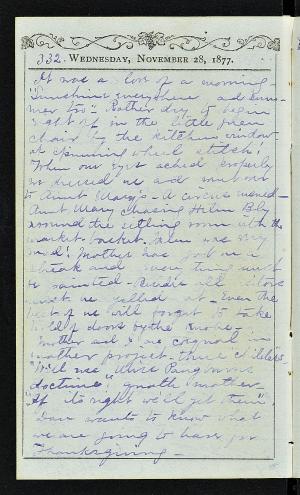 332. WEDNESDAY, NOVEMBER 28, 1877.
It was a love of a morning -
"Sunshine everywhere and Sum-
mer too". Rather dry to begin
right off in the little green
chair by the kitchen window
at spinning wheel stitch!
When our eyes ached properly
we dressed up and
to Aunt Mary's - A circus
Aunt Mary chasing Helen B.
around the sitting room with the
market basket. Helen was very
mad! Mother has got on a
streak and every thing must
be painted - Besides all visitors
must be yelled at - Even the
best of us will forget to take
hold of doors by the knobs -
Mother and I are agreed in
another project - three
"We'll use
doctrine" quoth mother
"If its right we'll get them"
Dan wants to know what
we are going to have for
Thanksgiving -